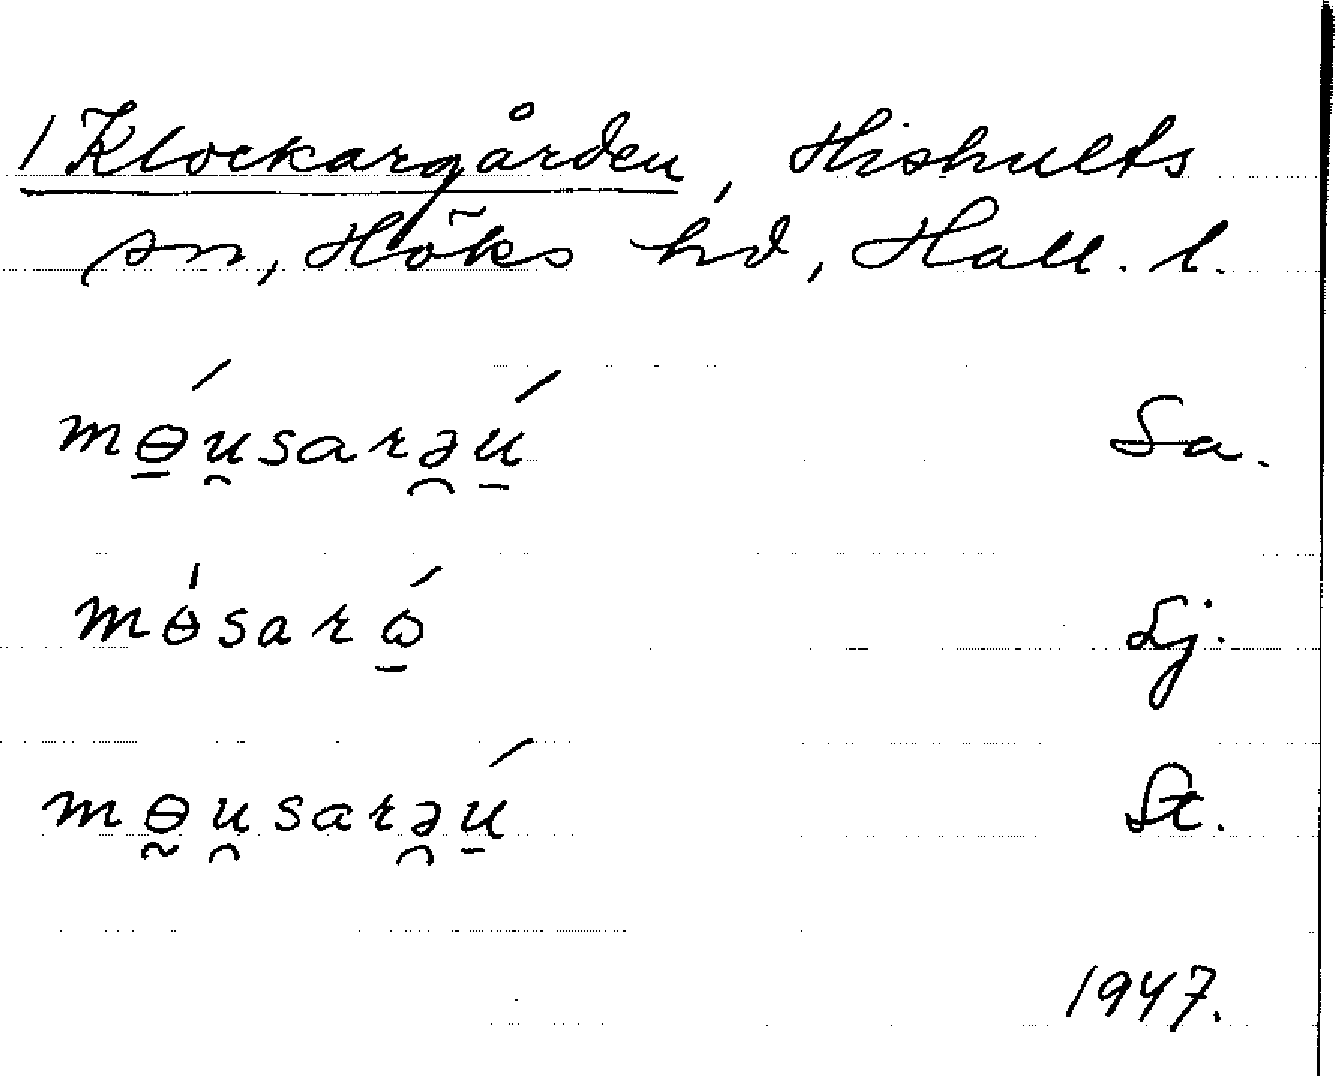 1 Klockargården, Hishults
sn, Höks hd, Hall. l.
mɵ̠́u̯sarə̯ú̠ Sa.
mɵ́sarǫ́ Lj.
mɵ̰u̯sarə̯ú̠ St.
1947.